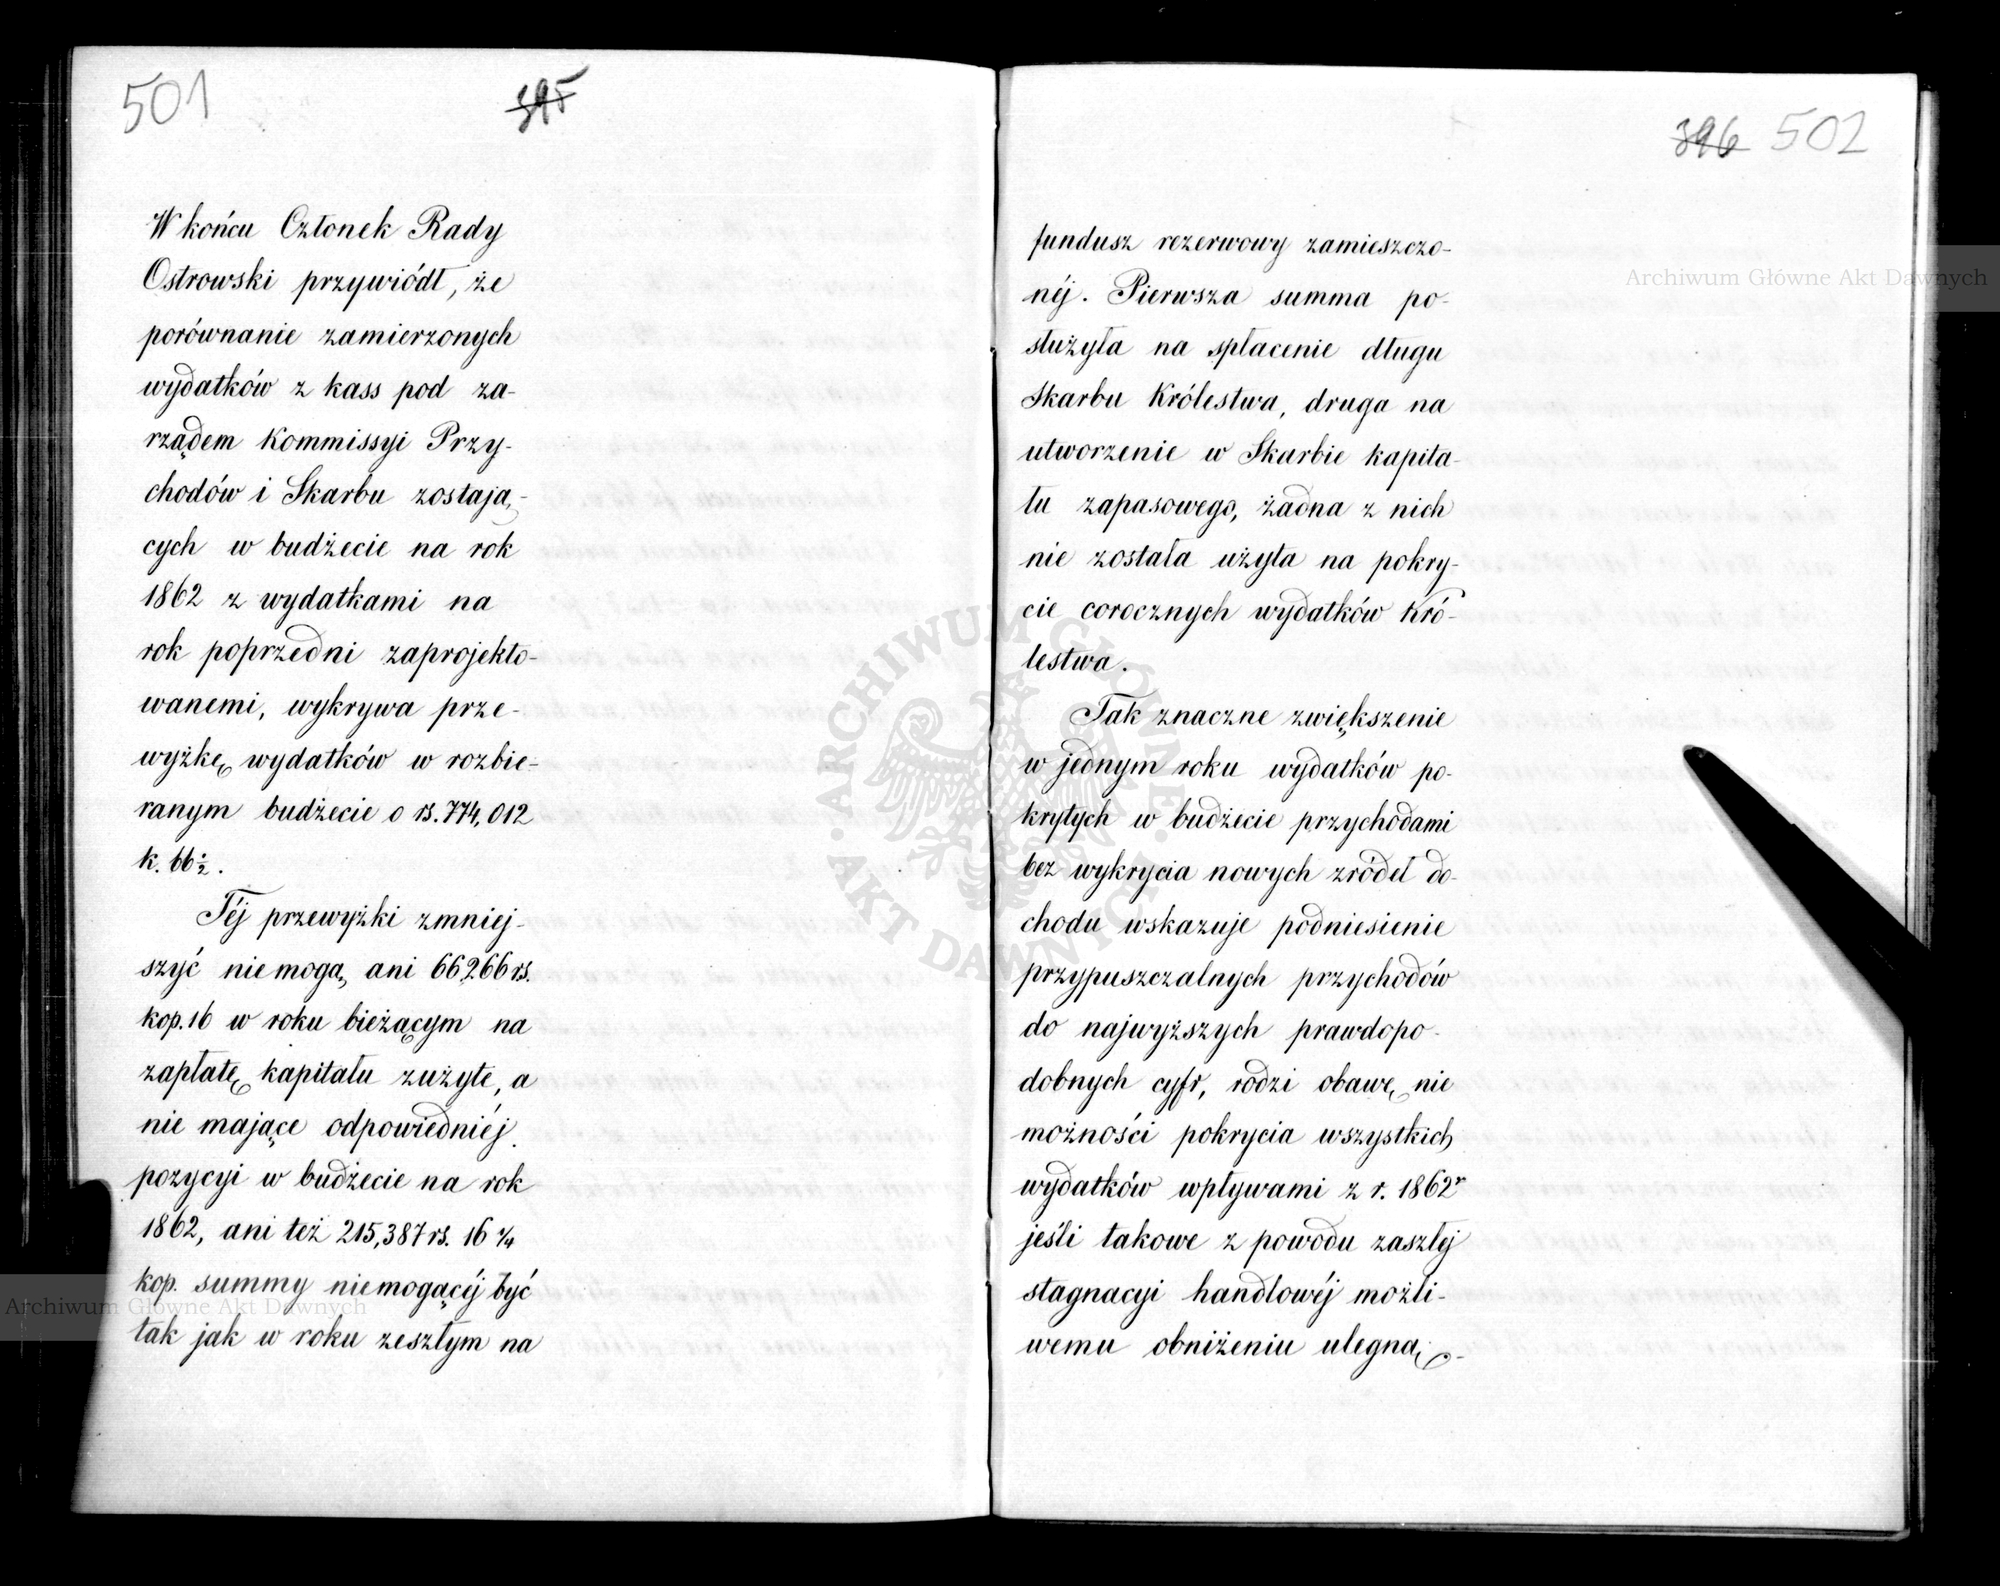 501
395
W końcu Członek Rady
Ostrowski przywiódł, że
porównanie zamierzonych
wydatków z kass pod za-
rządem Kommissyi Przy-
chodów i Skarbu zostają-
cych w budżecie na rok
1862 z wydatkami na
rok poprzedni zaprojekto-
wanemi, wykrywa prze-
wyżkę wydatków w rozbie-
ranym budżecie o rs. 774,012
k. 66 ½.
Téj przewyżki zmniej-
szyć nie mogą ani 66266 rs.
kop. 16 w roku bieżącym na
zapłatę kapitału zużyte, a
nie mające odpowiedniéj
pozycyi w budżecie na rok
1862, ani też 215,387 rs. 16 ¼
kop. summy niemogącéj być
tak jak w roku zeszłym na
396 502
fundusz rezerwowy zamieszczo-
néj. Pierwsza summa po-
służyła na spłacenie długu
Skarbu Królestwa, druga na
utworzenie w Skarbie kapita-
łu zapasowego, żadna z nich
nie została użyta na pokry-
cie corocznych wydatków Kró-
lestwa.
Tak znaczne zwiększenie
w jednym roku wydatków po-
krytych w budżecie przychodami
bez wykrycia nowych zródeł do-
chodu wskazuje podniesienie
przypuszczalnych przychodów
do najwyższych prawdopo-
dobnych cyfr, rodzi obawę nie
możności pokrycia wszystkich
wydatków wpływami z r. 1862r
jeśli takowe z powodu zaszłej
stagnacyi handlowéj możli-
wemu obniżeniu ulegną.-
Archiwum Główne Akt Dawnych
Archiwum Główne Akt Dawnych
ARCHIWUM GŁÓWNE · AKT DAWNYCH ·